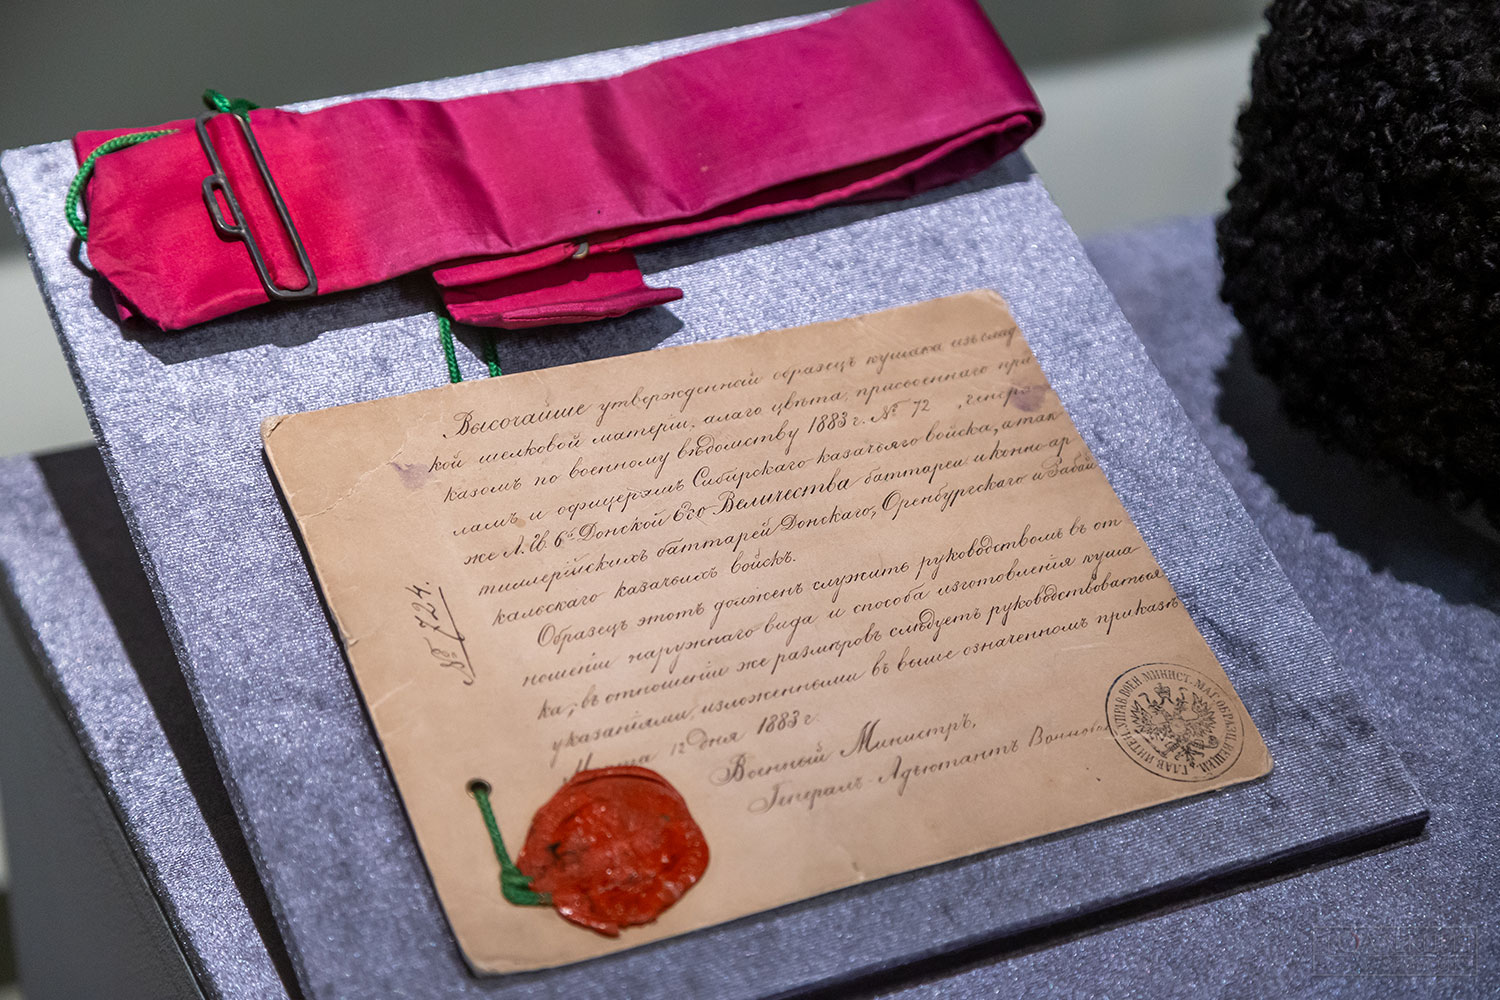 Высочайше утвержденный образецъ кушака изъ глад
кой шелковой матеріи, алаго цвѣта, присвоеннаго при
казомъ по военному вѣдомству 1883 г. № 72, генера
ламъ и офицерамъ Сибирскаго казачьяго войска, а так
же Л. Гв. 6й Донской Его Величества баттареи и конно-ар
тиллерійскихъ баттарей Донскаго, Оренбургскаго и Забай
кальскаго казачьихъ войскъ.
Образецъ этотъ долженъ служить руководствомъ въ от
ношеніи наружнаго вида и способа изготовленія куша
ка; въ отношеніи же размѣровъ слѣдуетъ руководствоваться
указаніями, изложенными въ выше означенномъ приказѣ
Марта 12 дня 1883 г.
Военный Министръ,
Генералъ-Адъютантъ Ванновскій
№ 724.
ГЛАВ. ИНТЕН. УПРАВ. ВОЕН. МИНИСТ. МАГ. ОБРАЗЦ. ВЕЩЕЙ